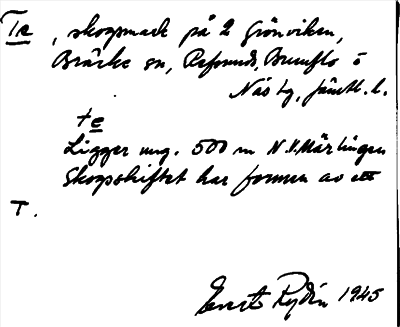 Te , skogsmark på 2 Grönviken,
Bräcke sn, Refsunds, Brunflo o
Näs tg, Jämtl. l.
te
Ligger ung. 500 m N.V. Märlingen
Skogsskiftet har formen av ett
T.
Evert Rydén 1945